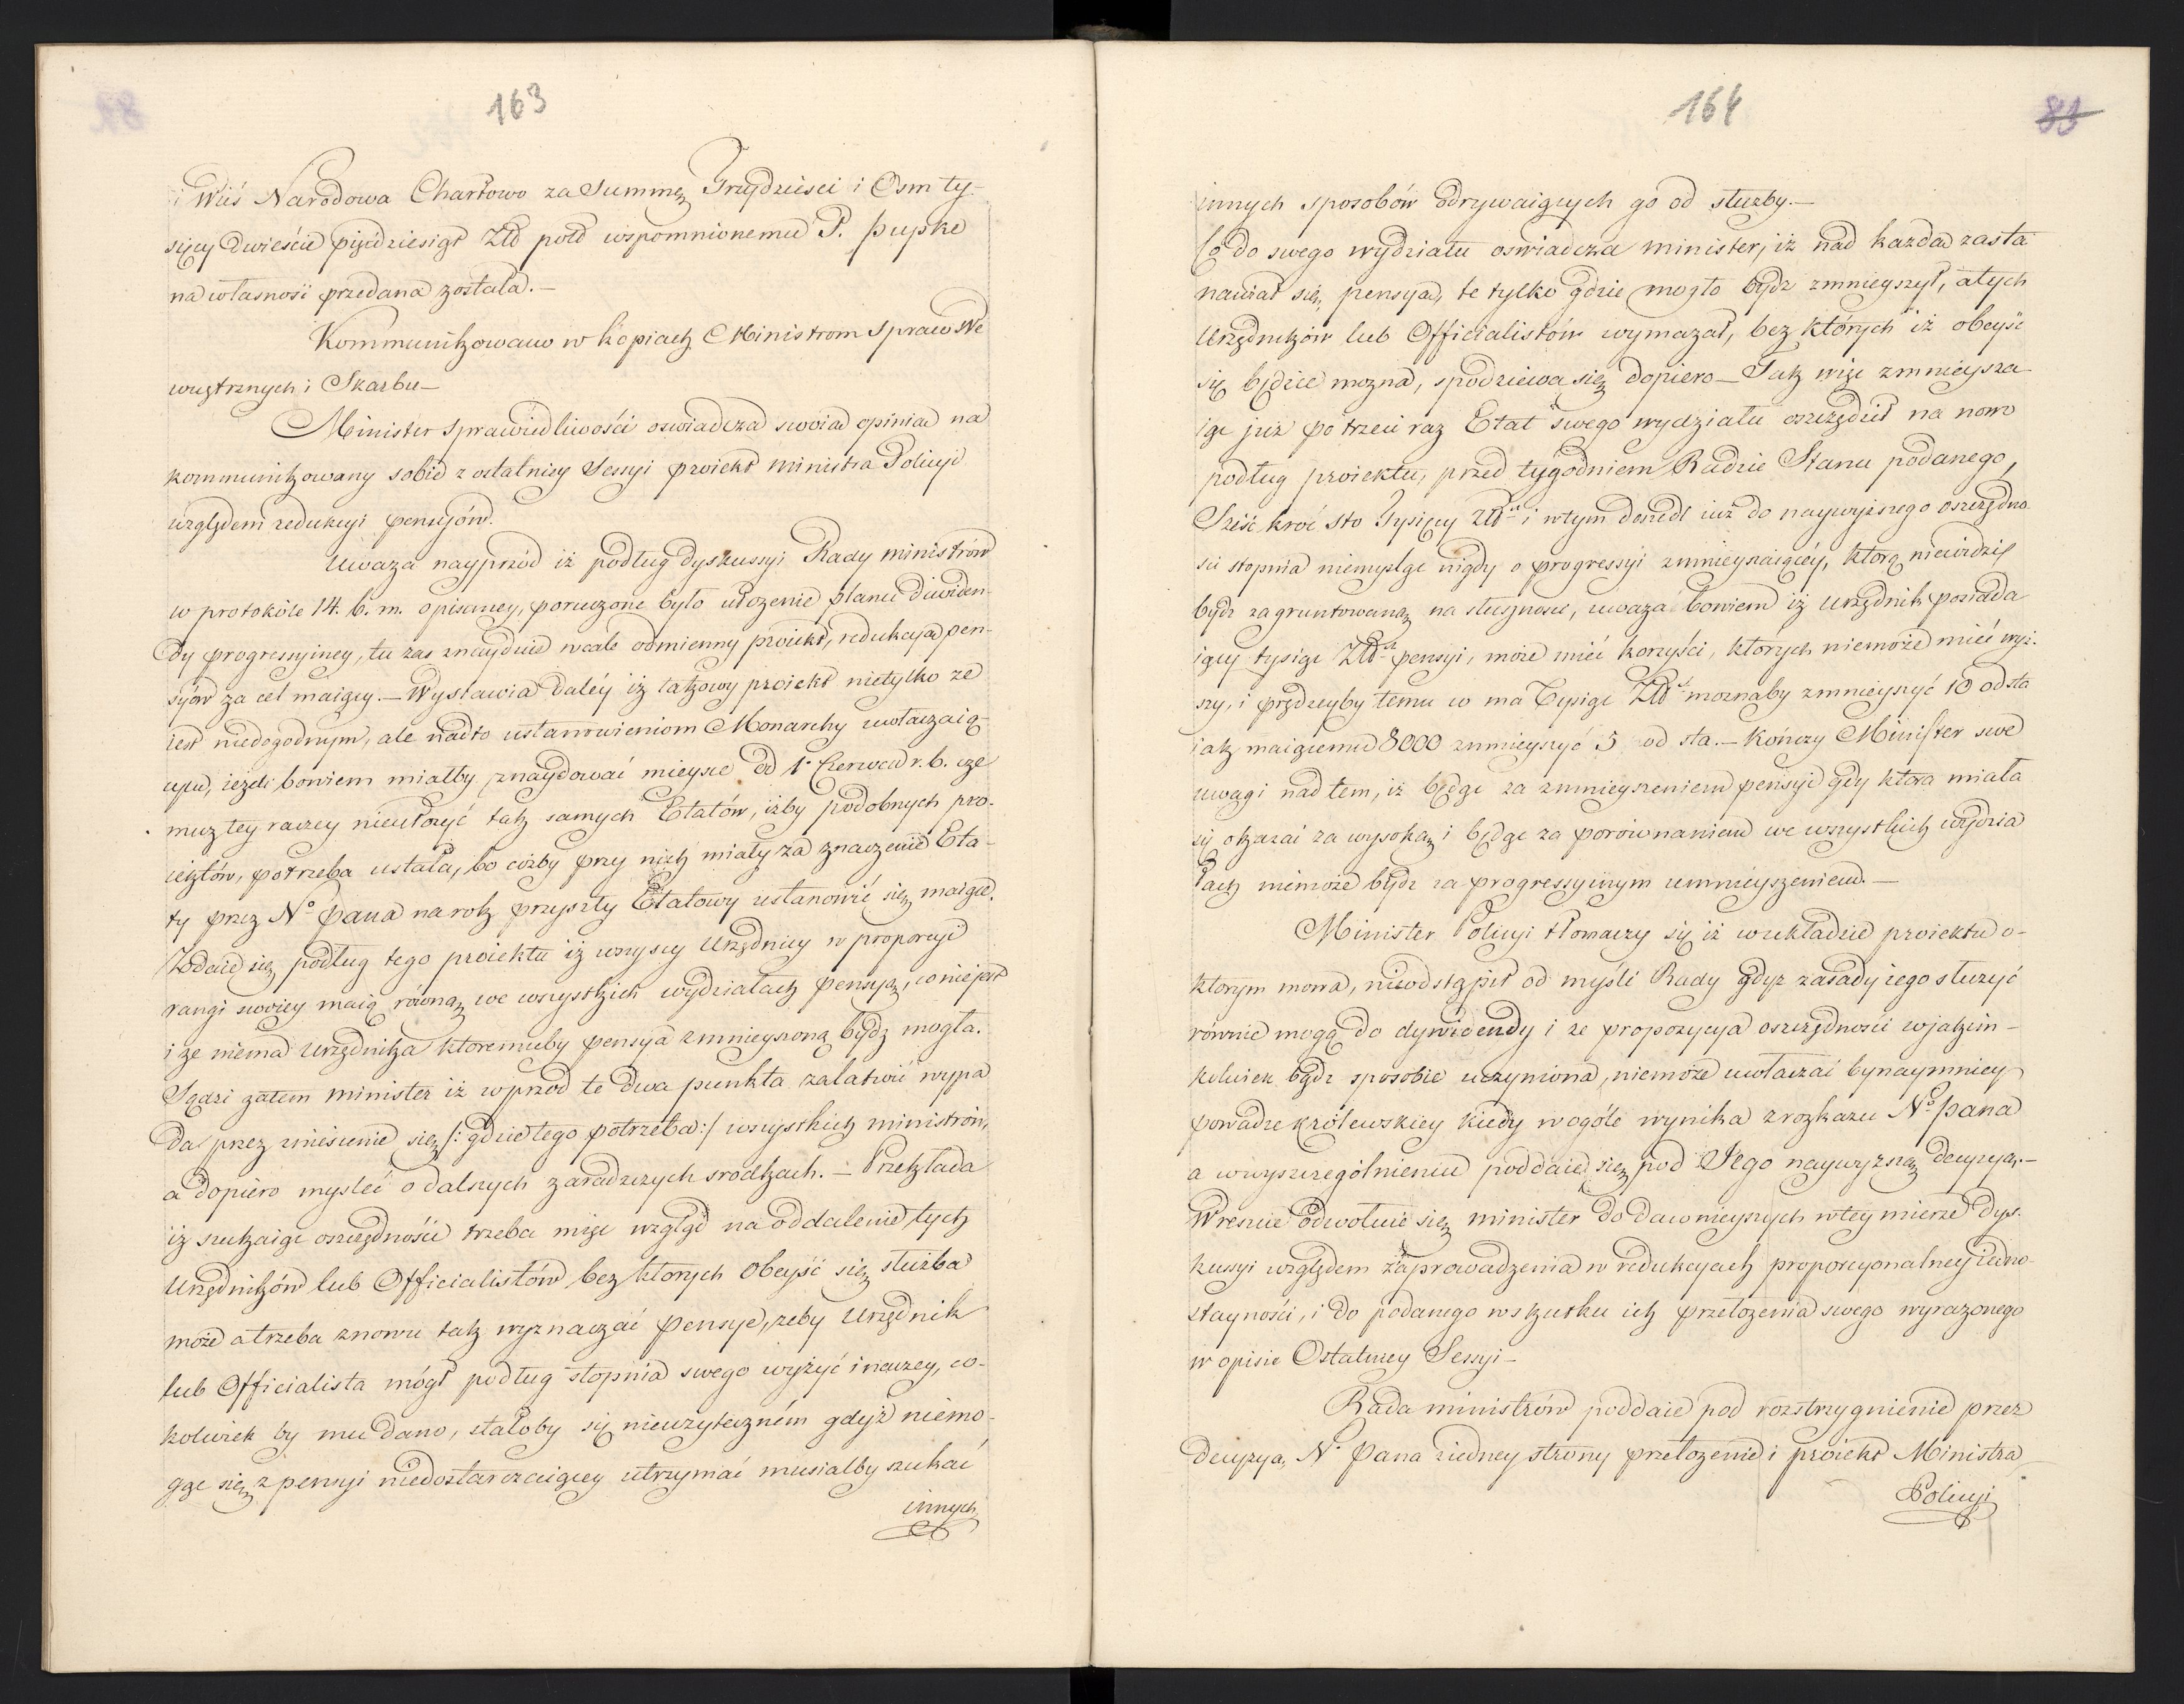 163
i Wieś Narodowa Chartowo za Summę Trzydzieści i Osm ty-
sięcy Dwieście pięćdziesiąt Złł polł wspomnionemu P. Pupke
na własność przedana została.—
Kommunikowano w kopiach Ministrom Spraw We
wnętrznych i Skarbu—
Minister Sprawiedliwości oswiadcza swoią opinią na
kommunikowany sobie z ostatniey Sessyi proiekt ministra Policyi
względem redukcyi pensyjów.
Uważa nayprzód iż podług dyskussyi Rady ministrów
w protokóle 14. b. m. opisaney, poruczone było ułożenie planu diwiden-
dy progressyiney, tu zas znayduie wcale odmienny proiekt, redukcyą pen-
syów za cel maiący.— Wystawia daléy iż takowy proiekt nietylko ze
iest niedogodnym, ale nadto ustanowieniom Monarchy uwłaczaią-
cym, ieżeli bowiem miałby znaydować mieysce od 1º Czerwca r. b. cze
muz tey raczey nieułożyć tak samych Etatów, iżby podobnych pro-
iektów, potrzeba ustała, bo cóżby przy nich miały za znaczenie Eta-
ty przez Nº Pana na rok przyszły Etatowy ustanowić się maiące.
Zdaie się podług tego proiektu iż wszyscy Urzędnicy w proporcyi
rangi swoiey maią równą we wszystkich wydziałach pensyą, co nie jest
i ze niema Urzędnika ktoremuby pensya zmnieyszoną bydź mogła.
Sądzi zatem minister iż wprzod te dwa punkta załatwić wypa
da przez zniesienie się /: gdzie tego potrzeba :/ wszystkich ministrów,
a dopiero mysleć o dalszych zaradczych srodkach.— Przekłada
iż szukaiąc oszczędności trzeba mieć wzgląd na oddalenie tych
Urzędników lub Officialistów bez ktorych obeyść się służba
może a trzeba znowu tak wyznaczać pensye, zeby Urzędnik
lub Officialista mógł podług stopnia swego wyżyć inaczey, co-
kolwiek by mu dano, stałoby się nieużyteczném gdyż niemo-
gąc się z pensyi niedostarczaiącey utrzymać musiałby szukać
innych
164
83
innych sposobów odrywaiących go od służby.—
Co do swego wydziału oswiadcza minister, iż nad każdą zasta
nawiał się, pensyą, te tylko gdzie mogło bydź zmnieyszył, a tych
Urzędników lub Officialistów wymazał, bez których iż obeyść
się będzie można, spodziewa się dopiero— Tak więc zmnieysza
iąc już po trzeci raz Etat swego wydziału oszczędził na nowo
podług proiektu, przed tygodniem Radzie Stanu podanego,
Sześć kroć sto Tysięcy Złł i w tym doszedł iuż do naywyższego oszczędno
sci stopnia niemyśląc nigdy o progressyi zmnieyszaiącéy, którą niewidzi
bydź zagruntowaną na słuszności, uważa bowiem iż Urzędnik posiada
iący tysiąc Złł pensyi, może mieć korzyści, których niemoże mieć wyż-
szy, i prędzeyby temu co ma Tysiąc Złł moznaby zmnieyszyć 10 od sta
iak maiącemu 8000 zmnieyszyć 5 od sta.— Kończy Minister swe
uwagi nad tem, iż będąc za zmnieyszeniem pensyi gdy ktora miała
się okazać za wysoką i będąc za porównaniem we wszystkich wydzia
łach niemoże bydź za progressyinym umnieyszeniem.—
Minister Policyi tłomaczy się iż w układzie proiektu o-
ktorym mowa, nieodstąpił od myśli Rady gdyż zasady iego służyć
równie mogą do dywidendy i ze propozycya oszczędności w jakim-
kolwiek bądz sposobie uczyniona, niemoże uwłaczać bynaymniey
powadze królewskiey kiedy w ogóle wynika z rozkazu Nº Pana
a w wyszczególnieniu poddaie się pod Jego naywyższą decyzyą.—
Wreszcie odwołuie się minister do dawnieyszych w tey mierze dys-
kussyi względem zaprowadzenia w redukcyach proporcyonalney iedno-
staynosci, i do podanego w skutku ich przełożenia swego wyrażonego
w opisie Ostatniey Sessyi—
Rada ministrów poddaie pod rozstrzygnienie przez
decyzyą, Nº Pana z iedney strony przełożenie i proiekt Ministra
Policyi